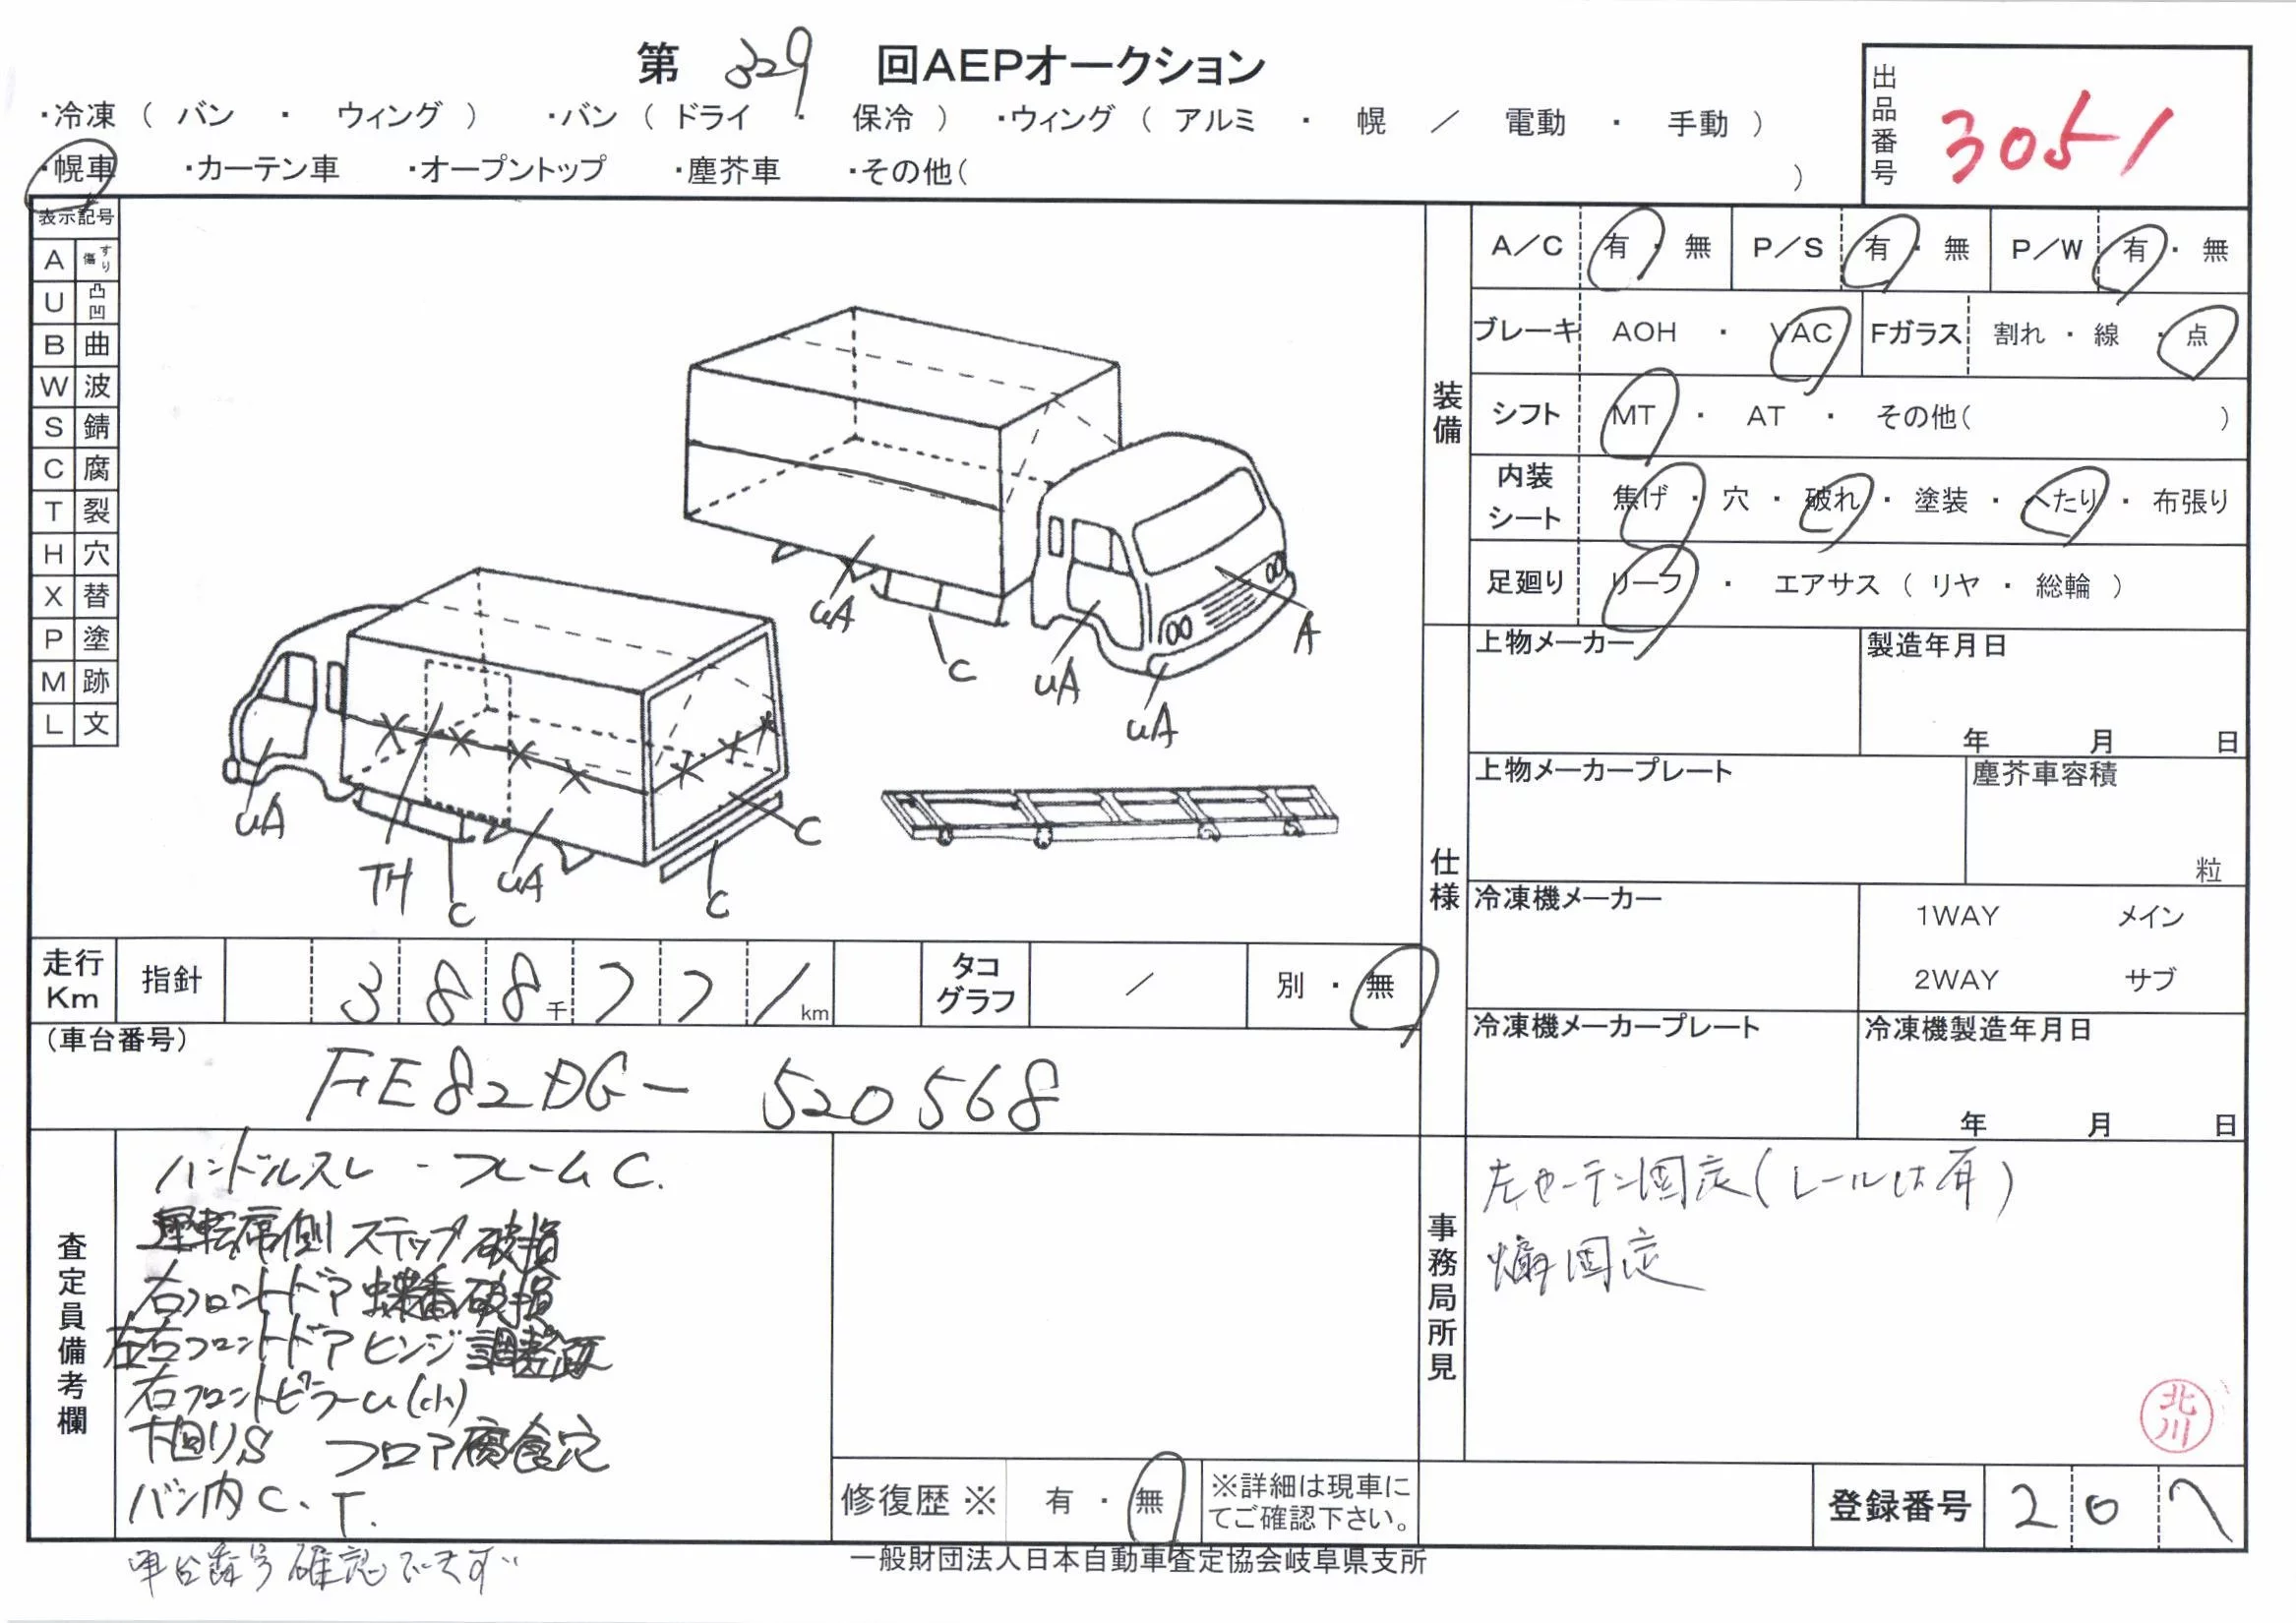 第 329 回AEPオークション
出品番号 3051
・冷凍（ バン ・ ウィング ） ・バン（ ドライ ・ 保冷 ） ・ウィング（ アルミ ・ 幌 ／ 電動 ・ 手動 ）
・幌車 ・カーテン車 ・オープントップ ・塵芥車 ・その他（ ）
表示記号
A すり傷
U 凸凹
B 曲
W 波
S 錆
C 腐
T 裂
H 穴
X 替
P 塗
M 跡
L 文
uA
C
uA
uA
A
uA
TH
C
uA
C
C
装備
A／C 有 ・ 無 P／S 有 ・ 無 P／W 有 ・ 無
ブレーキ AOH ・ VAC Fガラス 割れ ・ 線 ・ 点
シフト MT ・ AT ・ その他（ ）
内装シート 焦げ ・ 穴 ・ 破れ ・ 塗装 ・ へたり ・ 布張り
足廻り リーフ ・ エアサス（ リヤ ・ 総輪 ）
仕様
上物メーカー 製造年月日
年 月 日
上物メーカープレート 塵芥車容積
粒
冷凍機メーカー 1WAY メイン
2WAY サブ
冷凍機メーカープレート 冷凍機製造年月日
年 月 日
走行Km 指針 388千771km タコグラフ ／ 別 ・ 無
（車台番号）
FE82DG－520568
査定員備考欄
ハンドルスレ ・ フレームC.
運転席側ステップ破損
右フロントドア蝶番破損
左右フロントドアヒンジ調整
右フロントピラーU(小)
下回りS フロア腐食穴
バン内C.T.
車台番号確認できず
修復歴 ※ 有 ・ 無 ※詳細は現車にてご確認下さい。
事務局所見
左カーテン固定(レールは有)
固定
北川
登録番号 207
一般財団法人日本自動車査定協会岐阜県支所